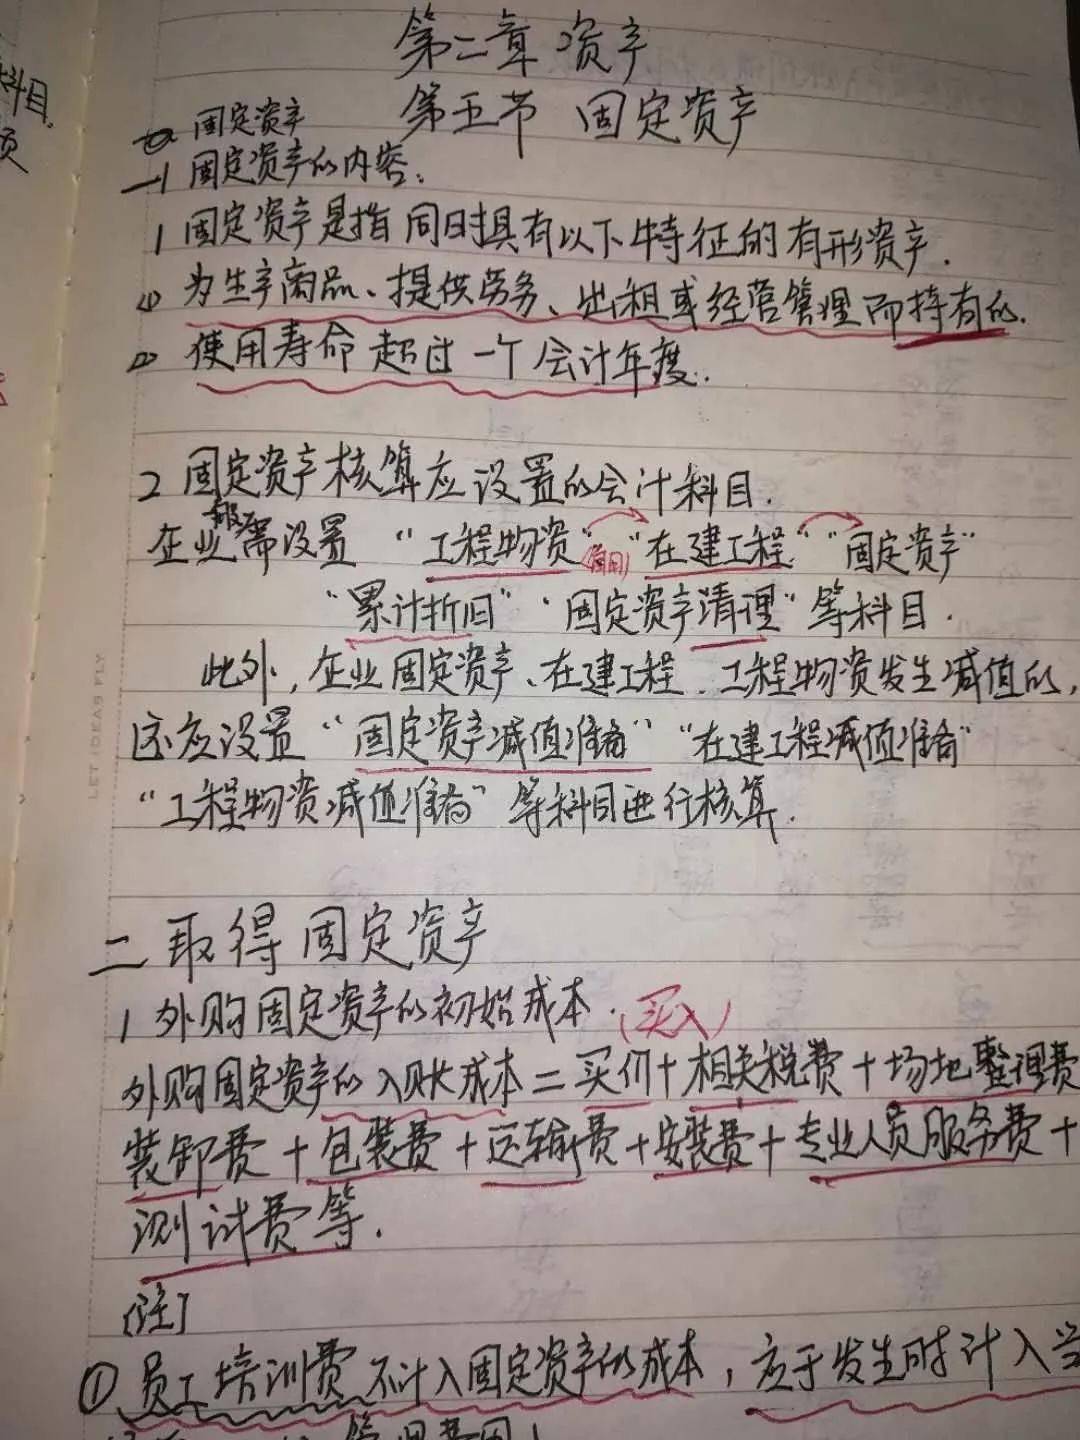 科目.
第二章 资产
第五节 固定资产
固定资产
一、固定资产的内容:
1 固定资产是指同时具有以下特征的有形资产.
(1) 为生产商品、提供劳务、出租或经营管理而持有的.
(2) 使用寿命超过一个会计年度.
2 固定资产核算应设置的会计科目.
企业一般需设置 “工程物资” “在建工程” “固定资产”
“累计折旧” “固定资产清理” 等科目.
此外, 企业固定资产、在建工程、工程物资发生减值的,
还应设置 “固定资产减值准备” “在建工程减值准备”
“工程物资减值准备” 等科目进行核算.
LET IDEAS FLY
二 取得固定资产
1 外购固定资产的初始成本. (买入)
外购固定资产的入账成本=买价+相关税费+场地整理费
装卸费+包装费+运输费+安装费+专业人员服务费+
测试费等.
[注]
① 员工培训费不计入固定资产的成本, 应于发生时计入当
管理费用